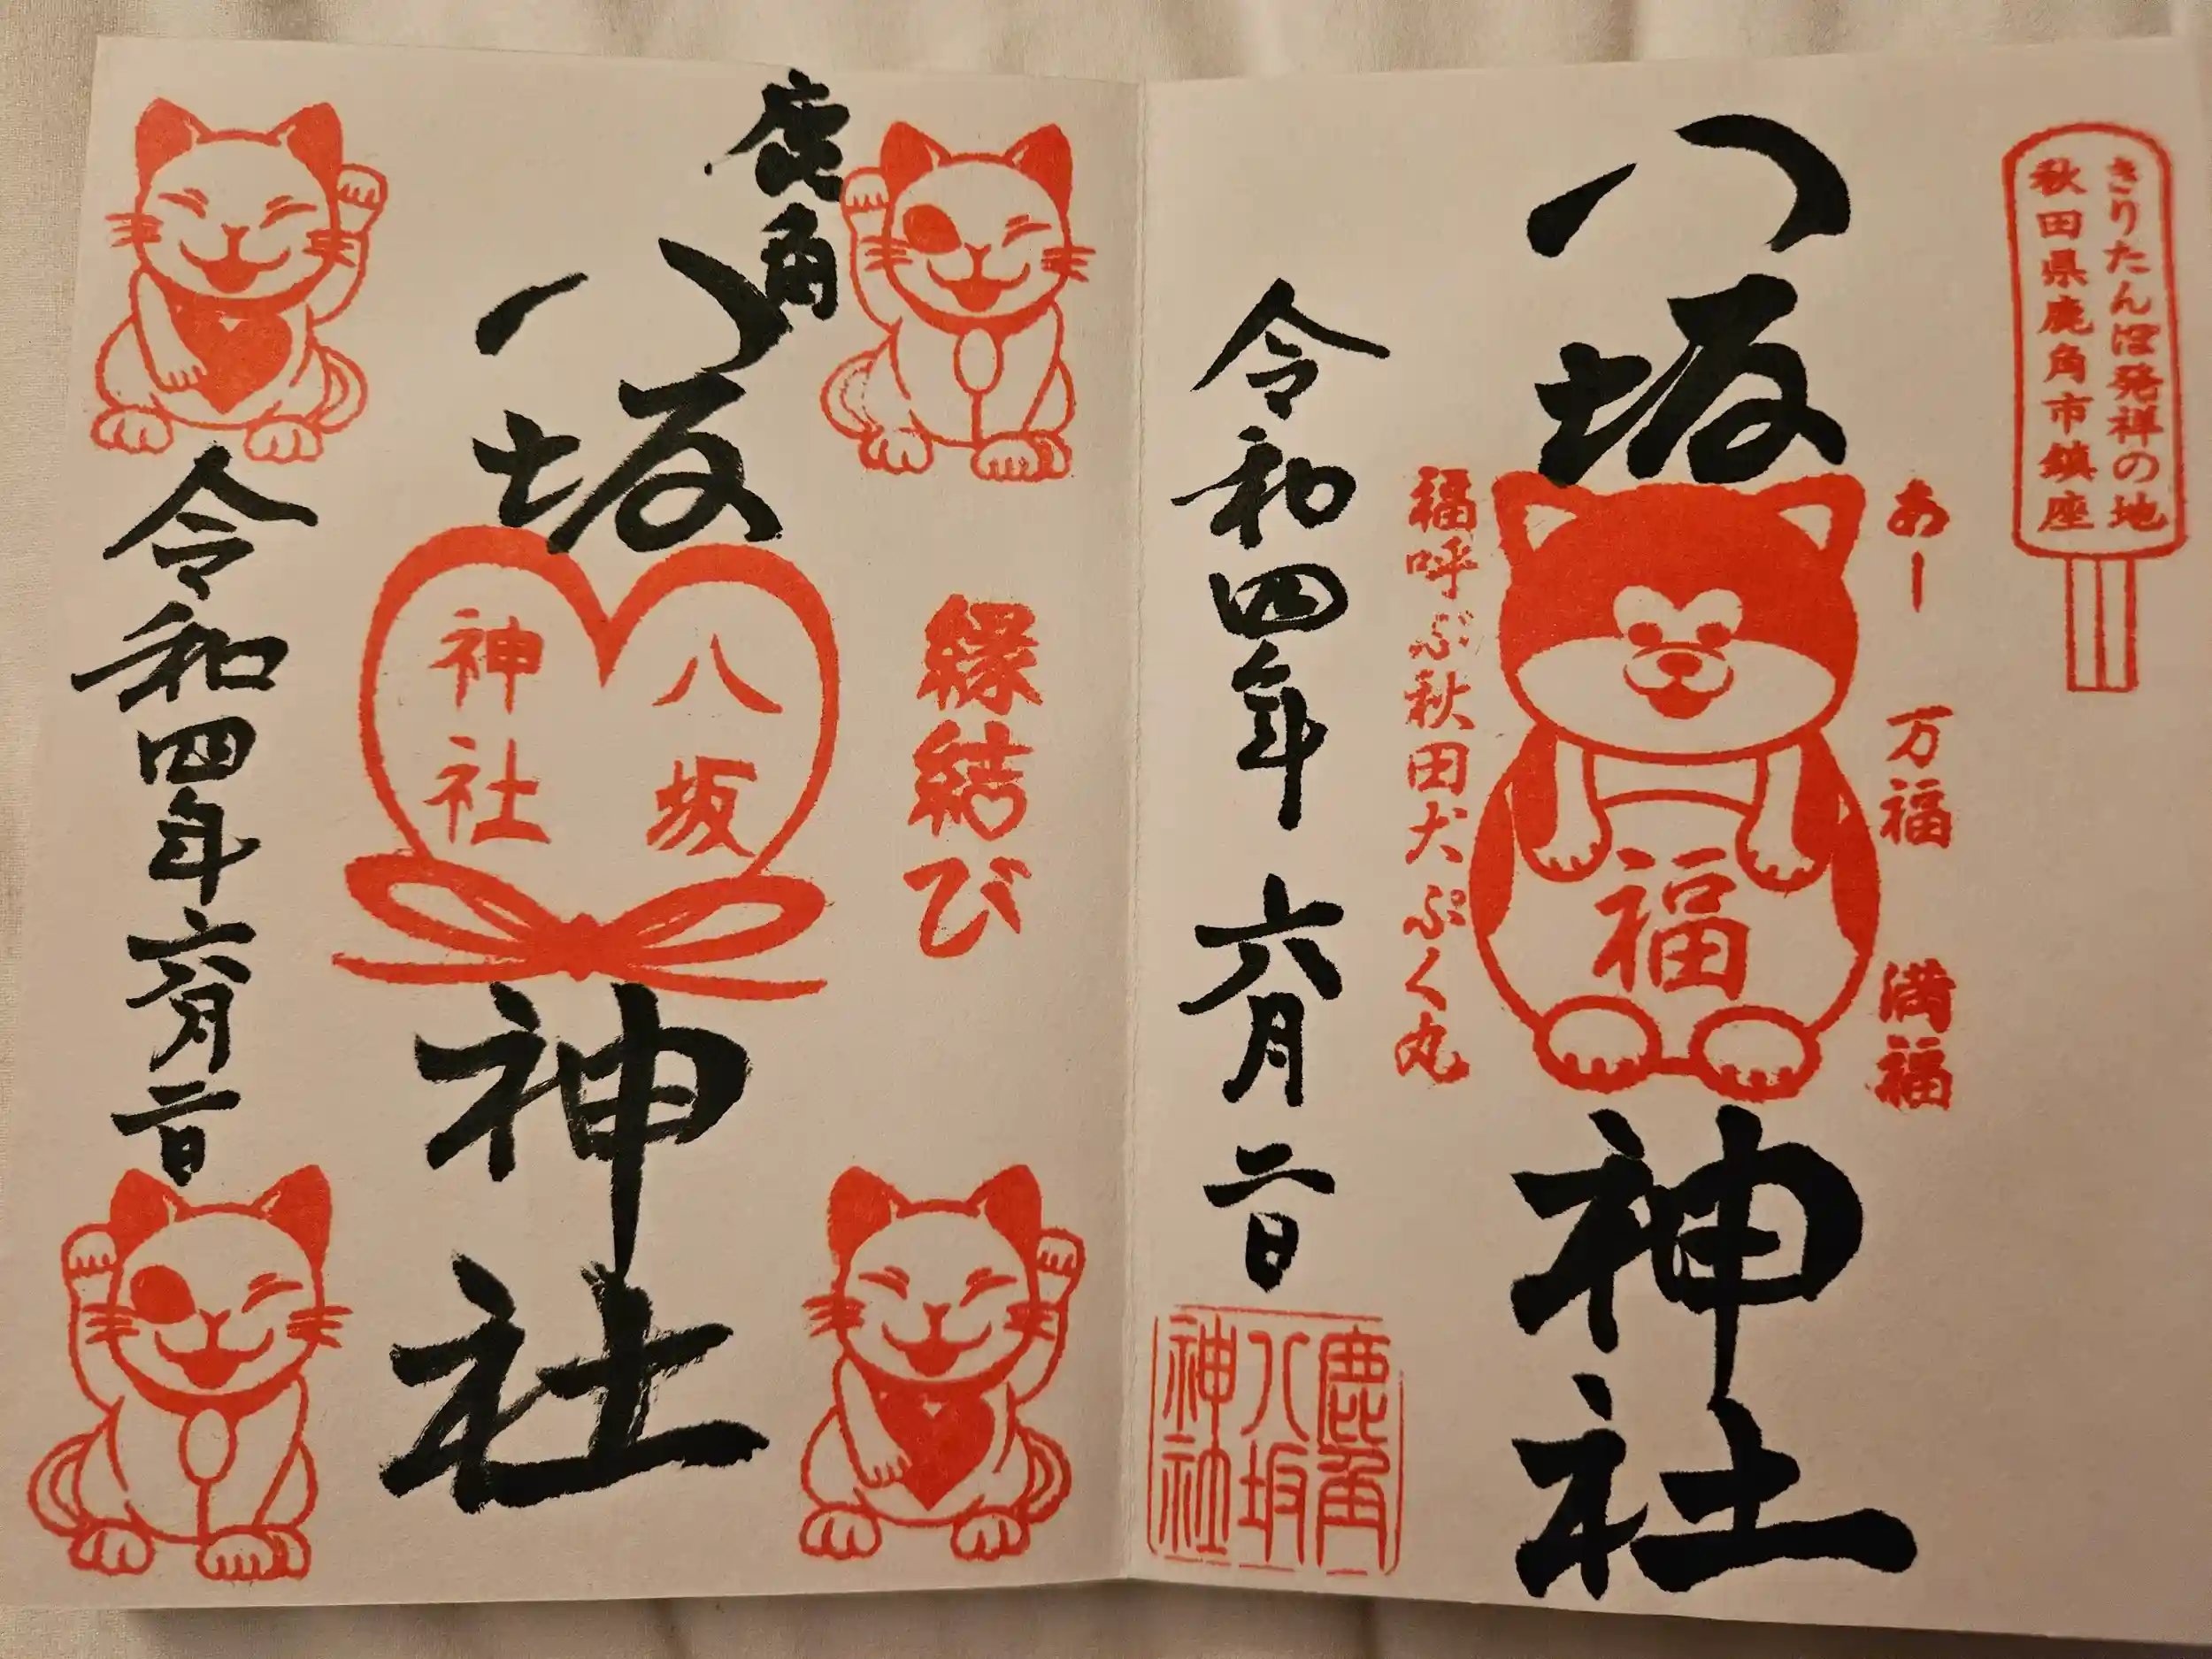 きりたんぽ発祥の地
秋田県鹿角市鎮座
あー 万福 満福
八坂神社
福
福呼ぶ秋田犬ぷく丸
令和四年 六月 二日
鹿角
八坂
神社
鹿角
縁結び
八坂神社
八坂
神社
令和四年六月二日